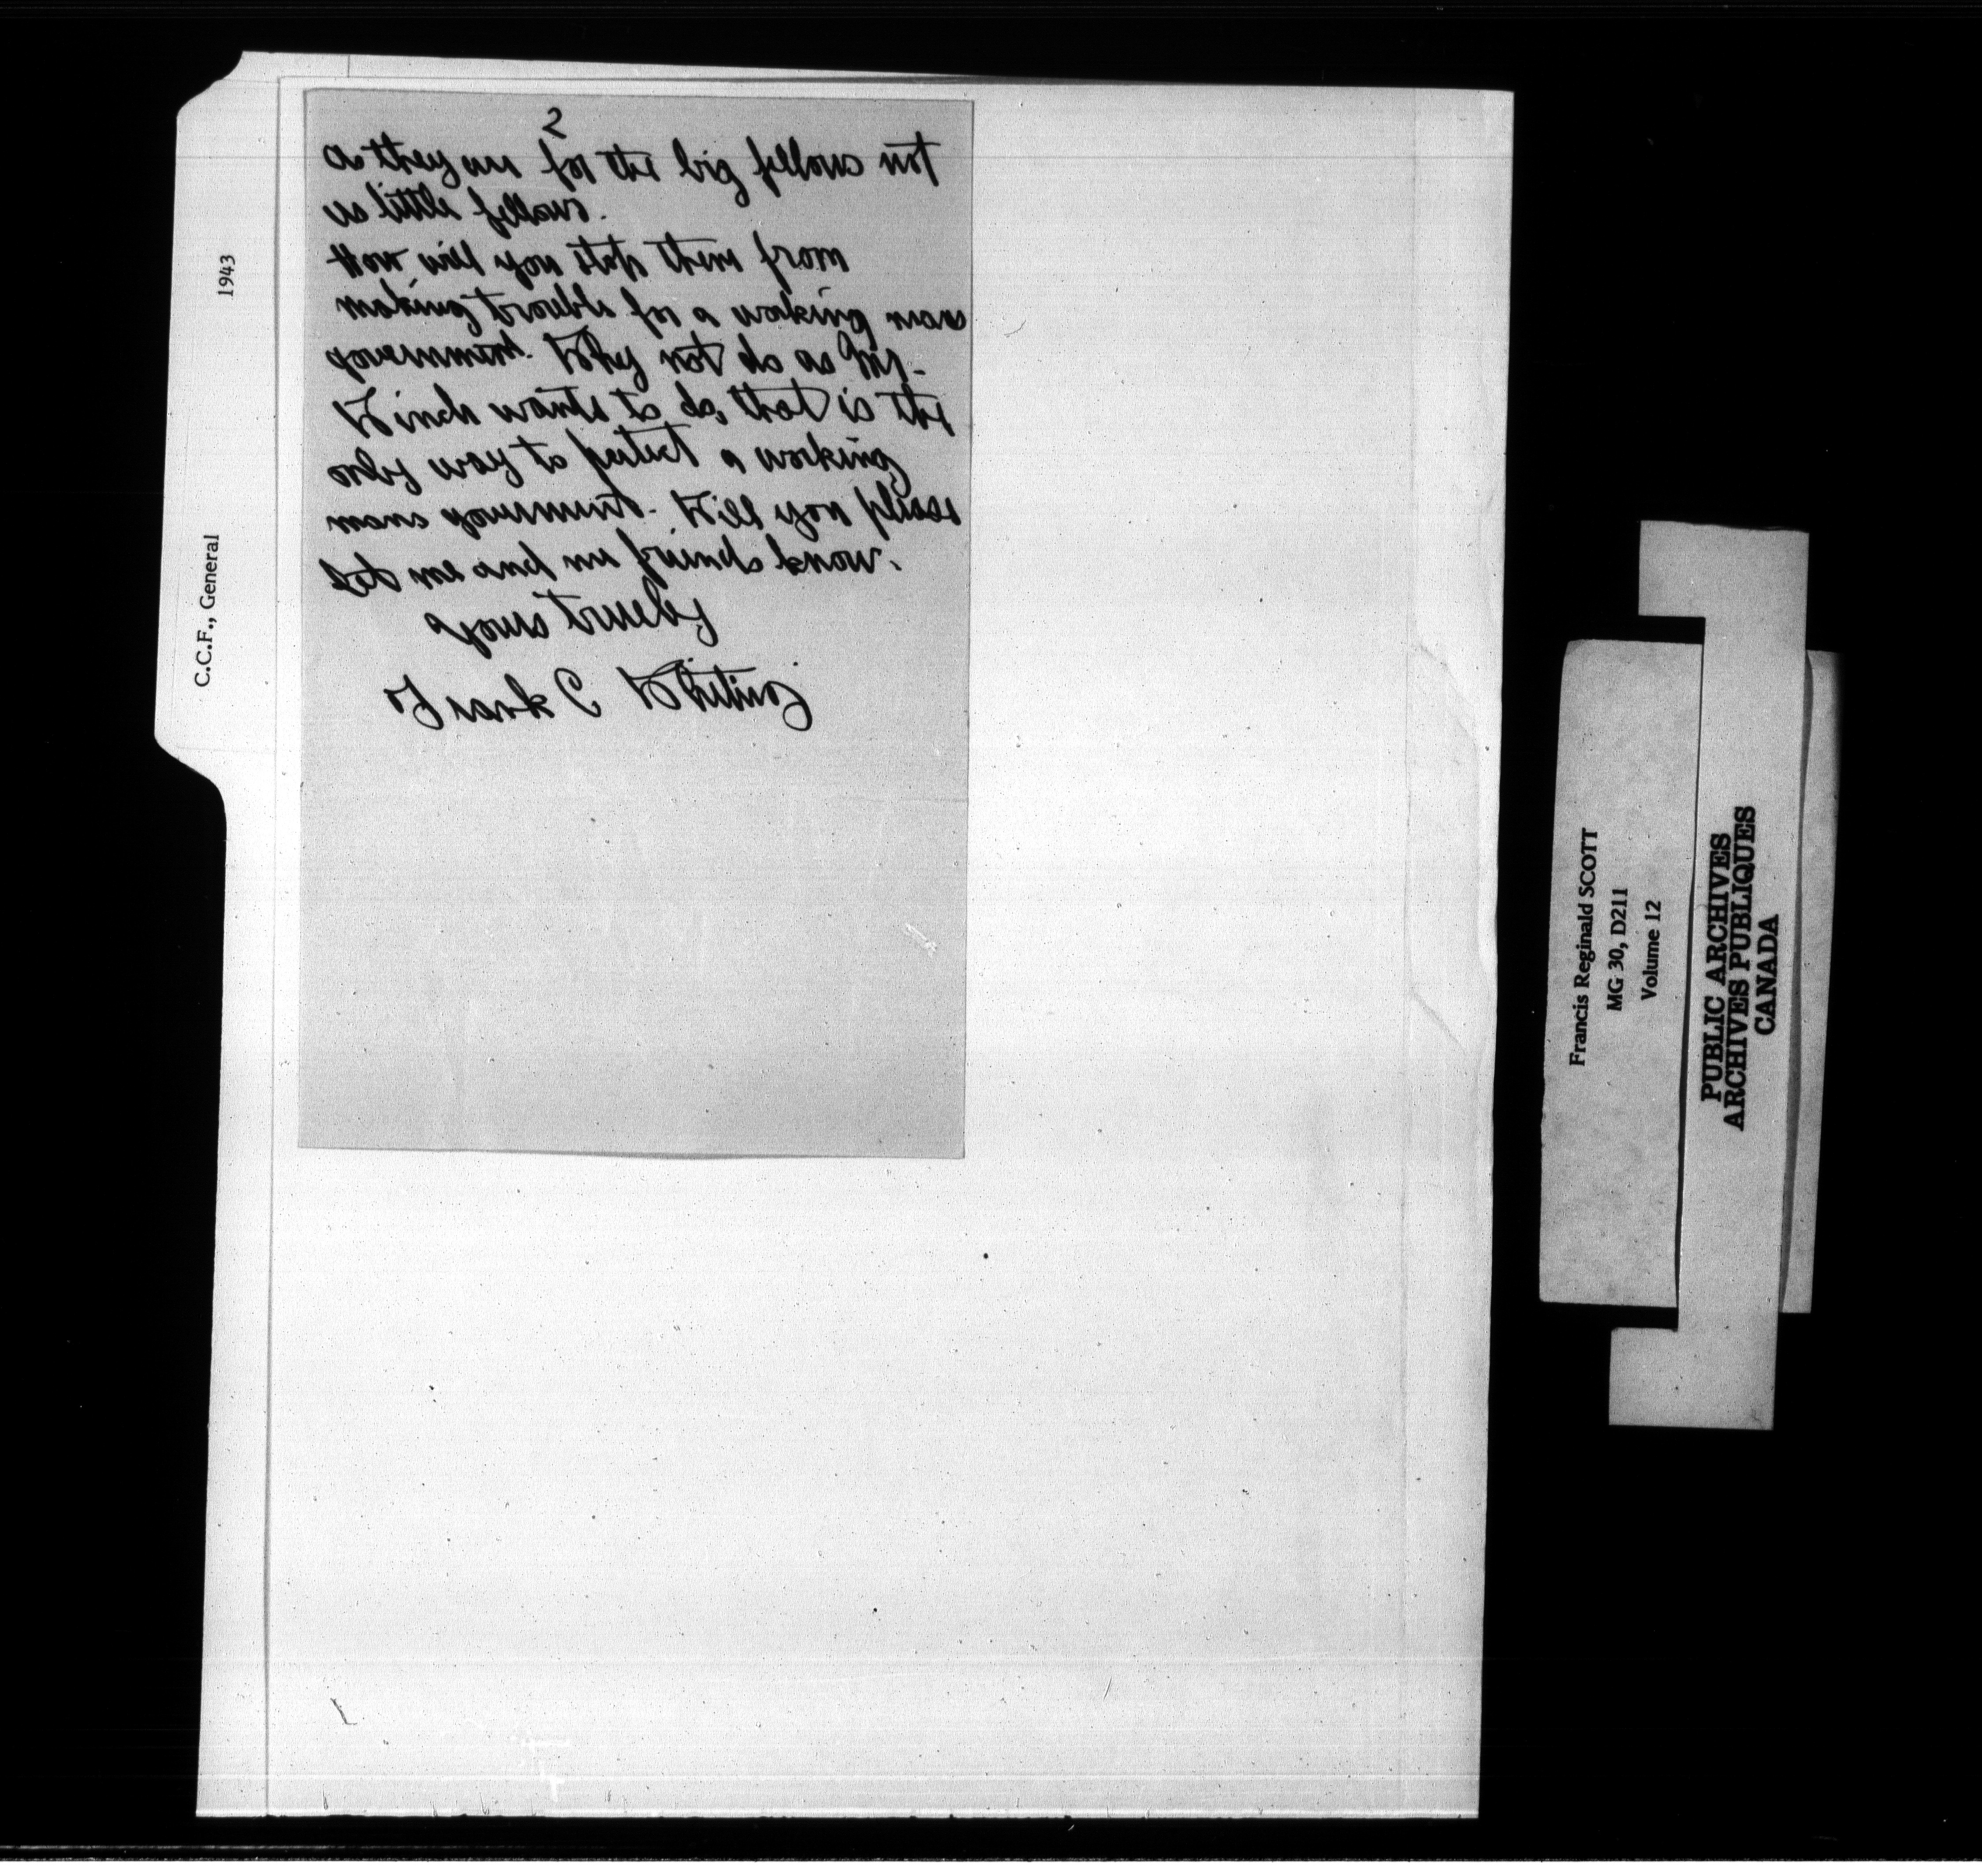 2
as they are for the big fellows not
us little fellows.
How will you stop them from
making trouble for a working mans
government. Why not do as Mr.
Winch wants to do, that is the
only way to protect a working
mans government. Will you please
Let me and me friends know.
Yours truely
Frank C Whiting
1943
C.C.F., General
Francis Reginald SCOTT
MG 30, D211
Volume 12
PUBLIC ARCHIVES
ARCHIVES PUBLIQUES
CANADA